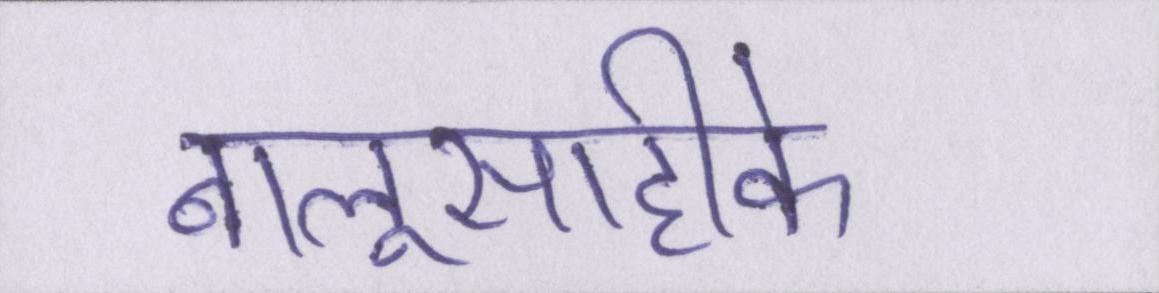 बालूसाहीके